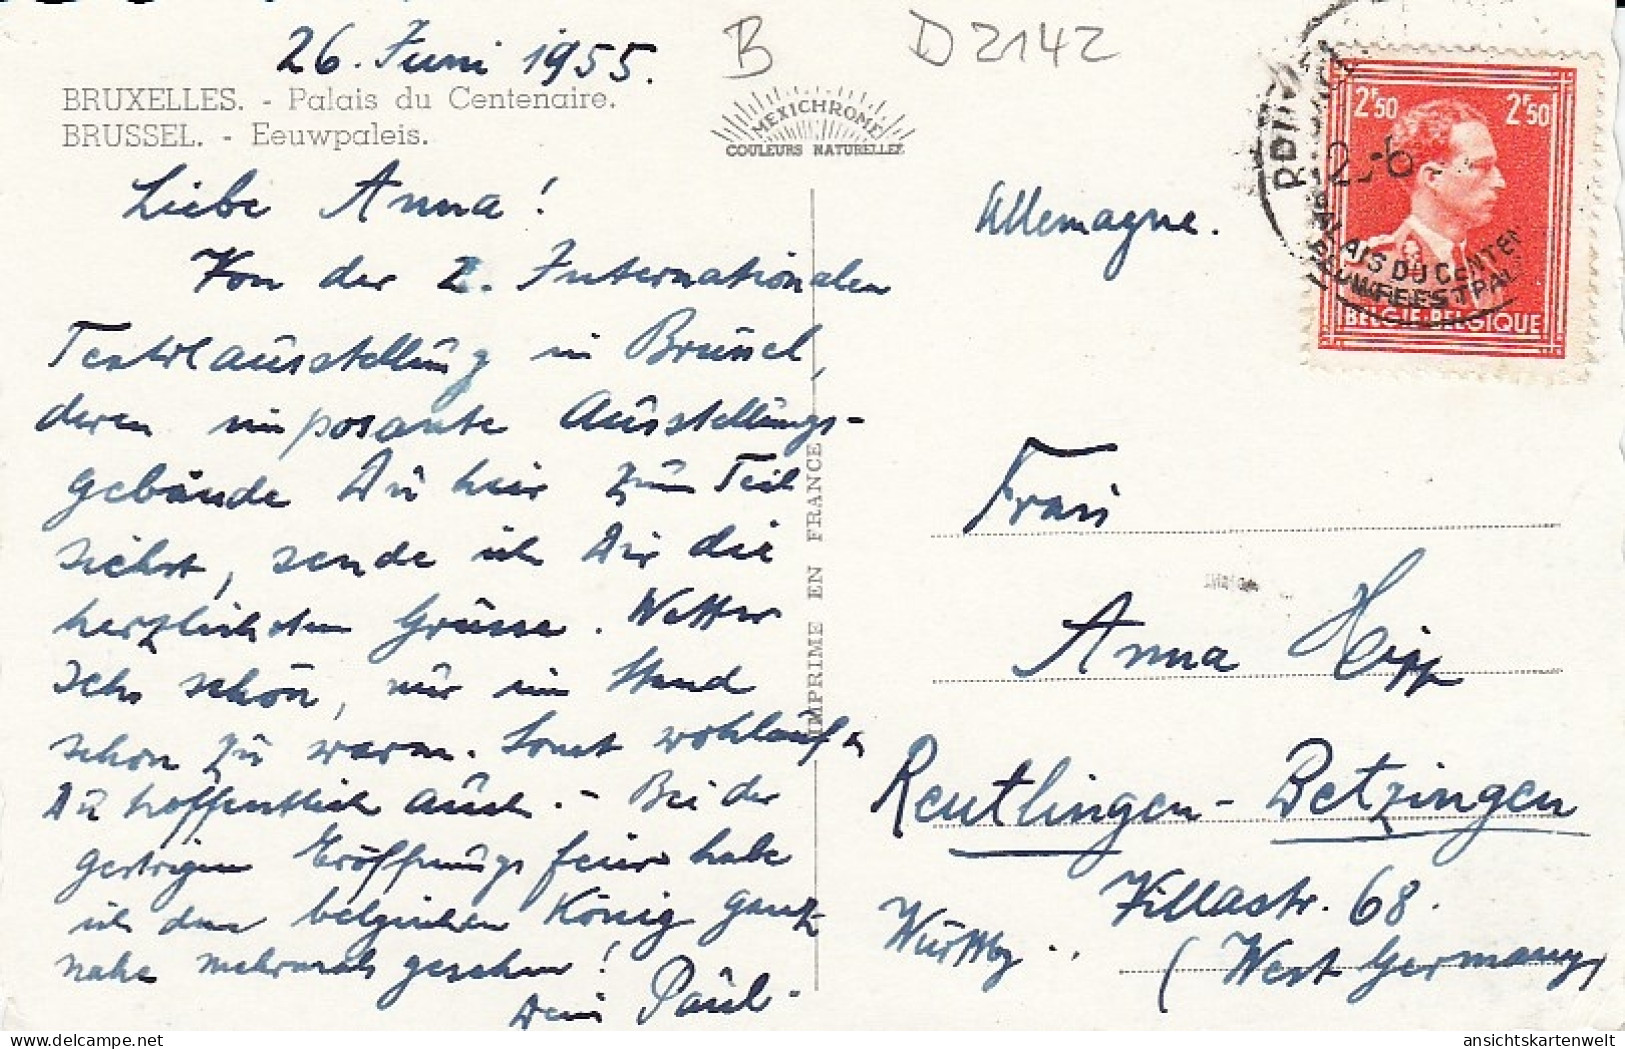 26. Juni 1955.
B
D 2142
BRUXELLES. - Palais du Centenaire.
BRUSSEL. - Eeuwpaleis.
MEXICHROME
COULEURS NATURELLES
Liebe Anna!
Von der 2. Internationalen
Textilausstellung in Brüssel,
deren imposante Ausstellungs-
gebäude Du hier zum Teil
siehst, sende ich Dir die
herzlichsten Grüsse. Wetter
sehr schön, nur im Stand
schon zu warm. Sonst wohlauf &
Du hoffentlich auch. - Bei der
gestrigen Eröffnungsfeier habe
ich den belgischen König ganz
nahe mehrmals gesehen!
Dein Paul.
IMPRIME EN FRANCE
Allemagne.
2F50 2F50
PALAIS DU CENTEN
EEUWFEESTPAL
BELGIE-BELGIQUE
Frau
Anna Hipp
Reutlingen - Betzingen
Villastr. 68.
Württbg..
(West Germany)
ansichtskartenwelt